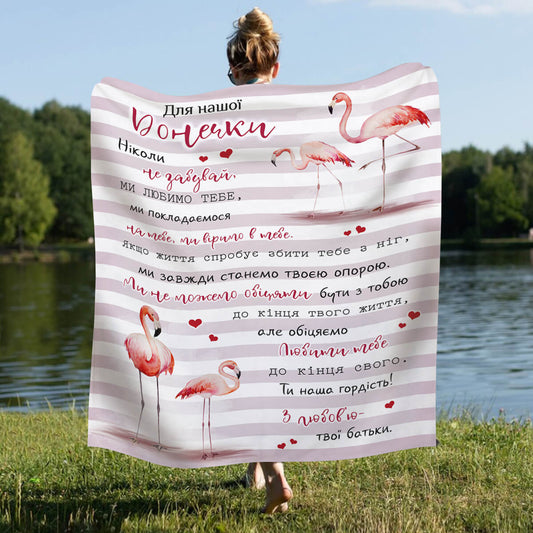 Для нашої
Донечки
Ніколи
не забувай,
ми любимо тебе,
ми покладаємося
на тебе, ми віримо в тебе.
Якщо життя спробує збити тебе з ніг,
ми завжди станемо твоєю опорою.
Ми не можемо обіцяти бути з тобою
до кінця твого життя,
але обіцяємо
Любити тебе
до кінця свого.
Ти наша гордість!
З любов'ю-
твої батьки.